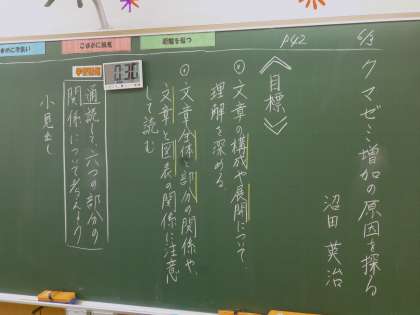 6/3
P42
クマゼミ増加の原因を探る
沼田 英治
《目標》
・文章の構成や展開について、
理解を深める。
・文章全体と部分の関係や、
文章と図表の関係に注意
して読む
通読して、六つの部分の
関係について考えよう
小見出し
学習課題
0:30